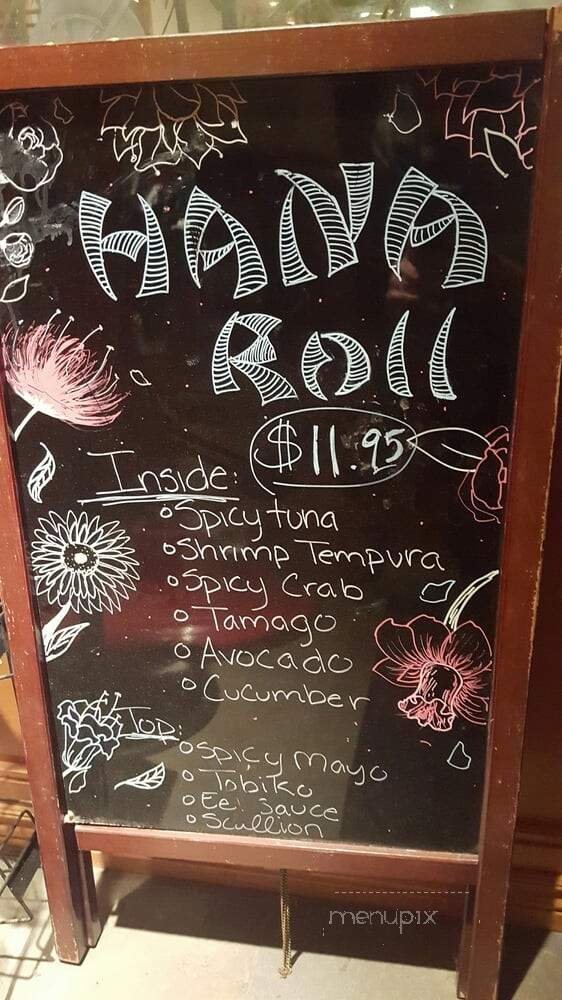 HANA
Roll
$11.95
Inside:
Spicy tuna
Shrimp Tempura
Spicy Crab
Tamago
Avocado
Cucumber
Top:
Spicy Mayo
Tobiko
Eel Sauce
Scullion
menupix